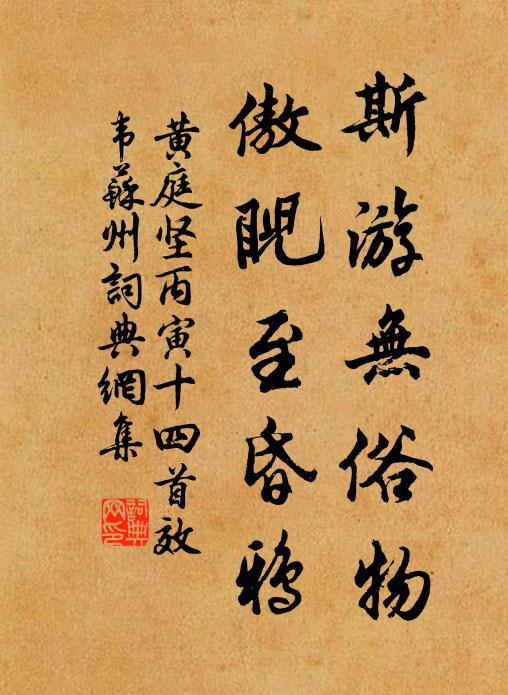 斯游無俗物
傲睨至昏鴉
黃庭坚丙寅十四首效
韦蘇州詞典網集
詞典
网印